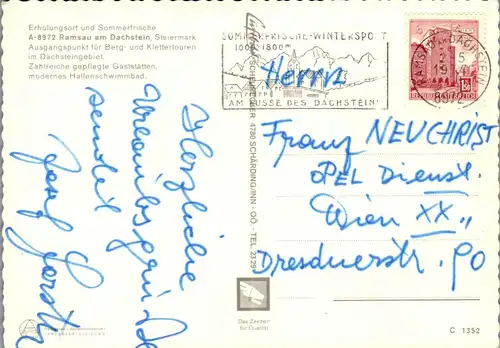 Erholungsort und Sommerfrische
A-8972 Ramsau am Dachstein, Steiermark
Ausgangspunkt für Berg- und Klettertouren
im Dachsteingebiet.
Zahlreiche gepflegte Gaststätten,
modernes Hallenschwimmbad.
Herzliche
Urlaubsgrüße
sendet
Josef
SOMMERFRISCHE-WINTERSPORT
"AM FUSSE DES DACHSTEIN"
RAMSAU AM DACHSTEIN
8972
4780 SCHÄRDING/INN - OÖ. - TEL.
Herrn
Franz NEUCHRIST
OPEL Dienst
Wien XX.,
Dresdnerstr. 90
Das Zeichen
für Qualität
C 1352